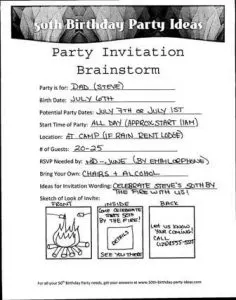 50th Birthday Party Ideas
Party Invitation
Brainstorm
Party is for: DAD (STEVE)
Birth Date: JULY 6TH
Potential Party Dates: JULY 7TH OR JULY 1ST
Start/Party Time: ALL DAY (APPROX START 11AM)
Location: AT CAMP (IF RAIN RENT LODGE)
# of Guests: 20-25
RSVP Needed by: MID-JUNE (BY EMAIL OR PHONE)
Bring Your Own: CHAIRS + ALCOHOL
Ideas for Invitation Wording: CELEBRATE STEVE'S 50TH BY
THE FIRE WITH US!
Sketch of Look of Invite:
FRONT INSIDE BACK
COME CELEBRATE
STEVE'S 50TH
BY THE FIRE!
DETAILS
SEE YOU THERE!
LET US KNOW
YOUR COMING!
CALL
For all your 50th Birthday Party needs, get your answers at www.50th-birthday-party-ideas.com